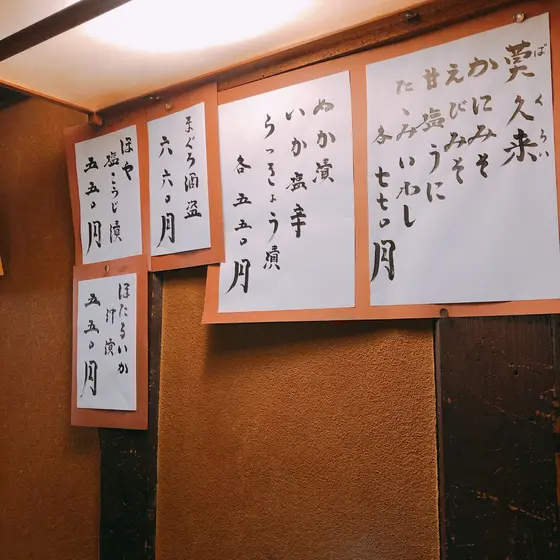 莫久来
ばくらい
かにみそ
えびみそ
甘塩うに
たゝみいわし
各七七〇円
ぬか漬
いか塩辛
らっきょう漬
各五五〇円
まぐろ酒盗
六六〇円
ほや
塩こうじ漬
五五〇円
ほたるいか
汁漬
五五〇円